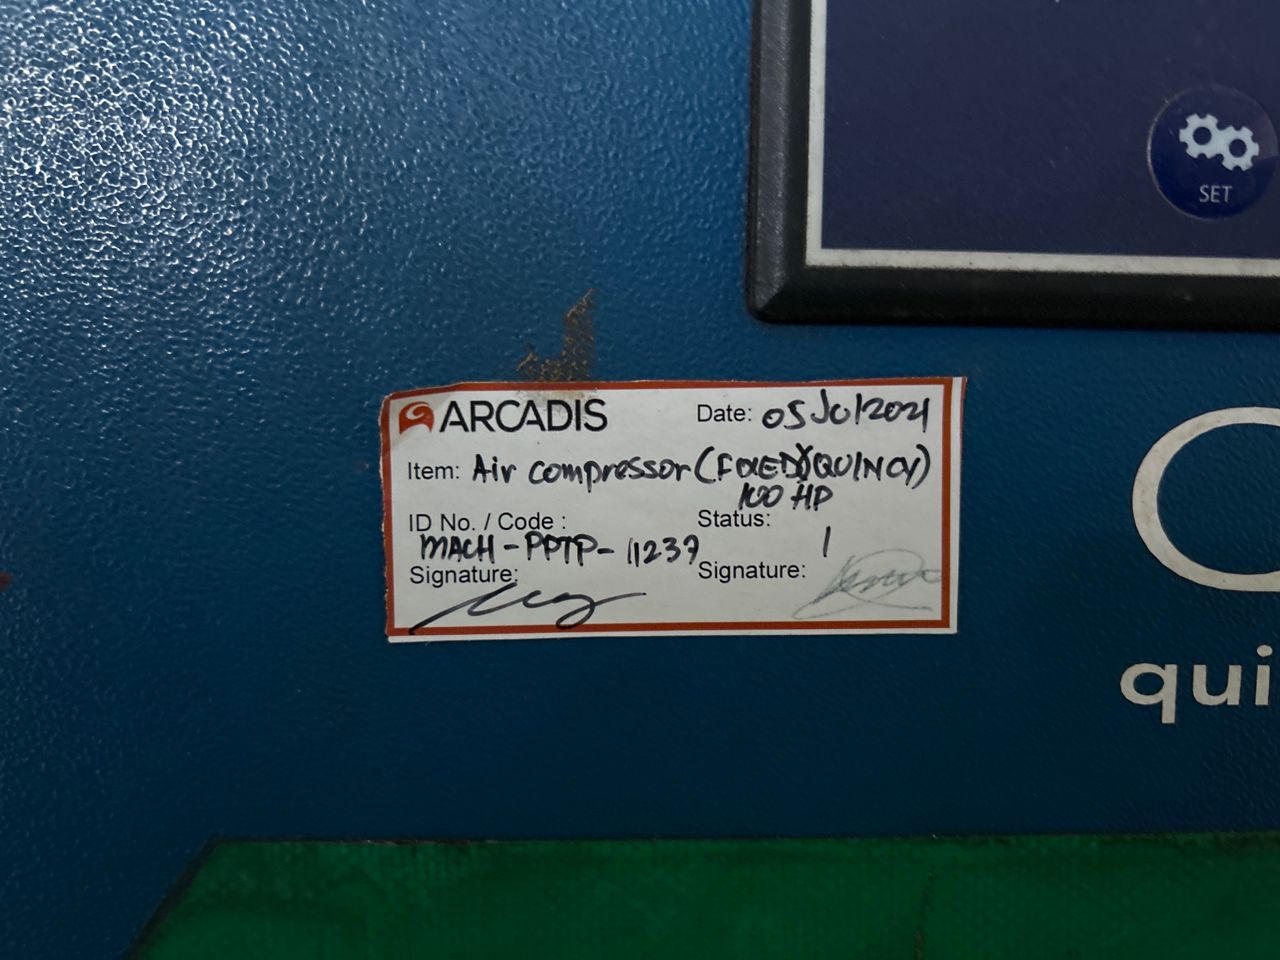 SET
ARCADIS
Date: 05 Jul 2021
Item: Air compressor (FIXED)(QUINCY)
100 HP
ID No. / Code : Status:
MACH-PPTP-11237 1
Signature: Signature:
qui